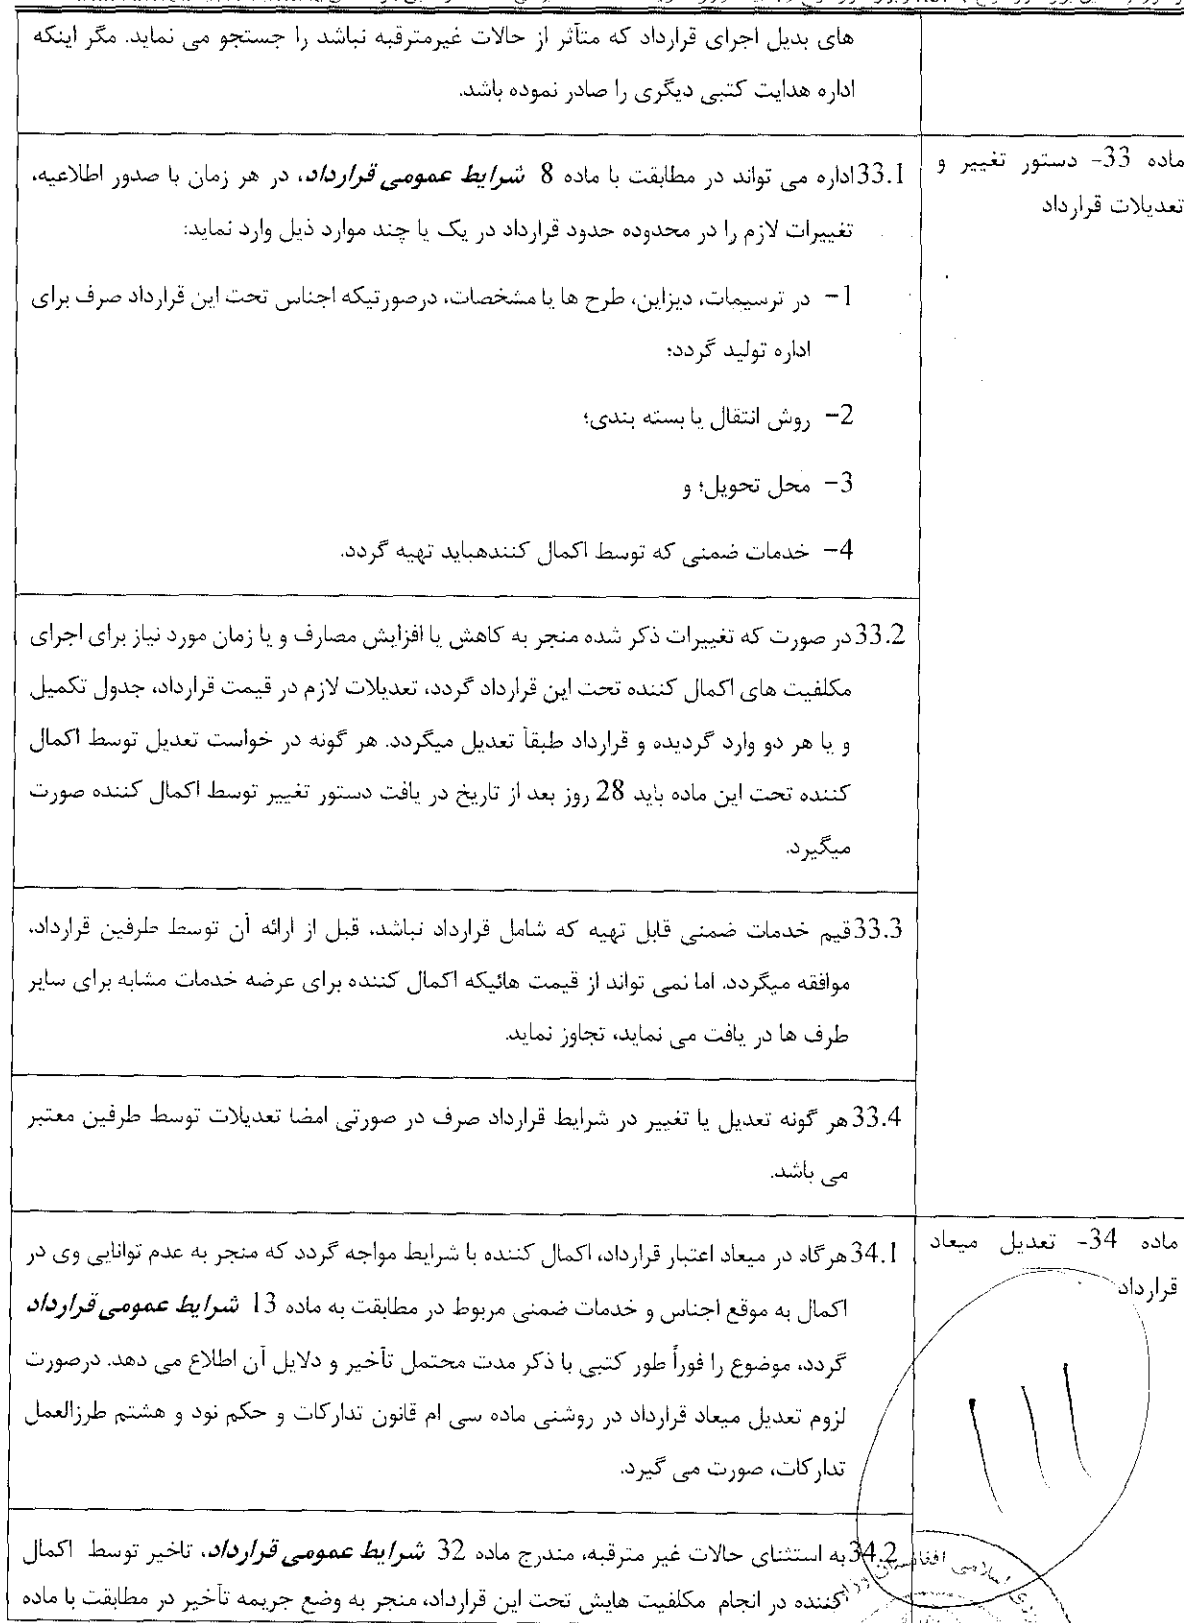 های بدیل اجرای قرارداد که متأثر از حالات غیرمترقبه نباشد را جستجو می نماید. مگر اینکه
اداره هدایت کتبی دیگری را صادر نموده باشد.
ماده 33- دستور تغییر و
تعدیلات قرارداد
33.1اداره می تواند در مطابقت با ماده 8 شرایط عمومی قرارداد، در هر زمان با صدور اطلاعیه،
تغییرات لازم را در محدوده حدود قرارداد در یک یا چند موارد ذیل وارد نماید:
1- در ترسیمات، دیزاین، طرح ها یا مشخصات، درصورتیکه اجناس تحت این قرارداد صرف برای
اداره تولید گردد؛
2- روش انتقال یا بسته بندی؛
3- محل تحویل؛ و
4- خدمات ضمنی که توسط اکمال کنندهباید تهیه گردد.
33.2در صورت که تغییرات ذکر شده منجر به کاهش یا افزایش مصارف و یا زمان مورد نیاز برای اجرای
مکلفیت های اکمال کننده تحت این قرارداد گردد، تعدیلات لازم در قیمت قرارداد، جدول تکمیل
و یا هر دو وارد گردیده و قرارداد طبقاً تعدیل میگردد. هر گونه در خواست تعدیل توسط اکمال
کننده تحت این ماده باید 28 روز بعد از تاریخ در یافت دستور تغییر توسط اکمال کننده صورت
میگیرد.
33.3قیم خدمات ضمنی قابل تهیه که شامل قرارداد نباشد، قبل از ارائه آن توسط طرفین قرارداد،
موافقه میگردد. اما نمی تواند از قیمت هائیکه اکمال کننده برای عرضه خدمات مشابه برای سایر
طرف ها در یافت می نماید، تجاوز نماید.
33.4هر گونه تعدیل یا تغییر در شرایط قرارداد صرف در صورتی امضا تعدیلات توسط طرفین معتبر
می باشد.
ماده 34- تعدیل میعاد
قرارداد
34.1هرگاد در میعاد اعتبار قرارداد، اکمال کننده با شرایط مواجه گردد که منجر به عدم توانایی وی در
اکمال به موقع اجناس و خدمات ضمنی مربوط در مطابقت به ماده 13 شرایط عمومی قرارداد
گردد، موضوع را فوراً طور کتبی با ذکر مدت محتمل تأخیر و دلایل آن اطلاع می دهد. درصورت
لزوم تعدیل میعاد قرارداد در روشنی ماده سی ام قانون تدارکات و حکم نود و هشتم طرزالعمل
تدارکات، صورت می گیرد.
34.2به استثنای حالات غیر مترقبه، مندرج ماده 32 شرایط عمومی قرارداد، تاخیر توسط اکمال
کننده در انجام مکلفیت هایش تحت این قرارداد، منجر به وضع جریمه تأخیر در مطابقت با ماده